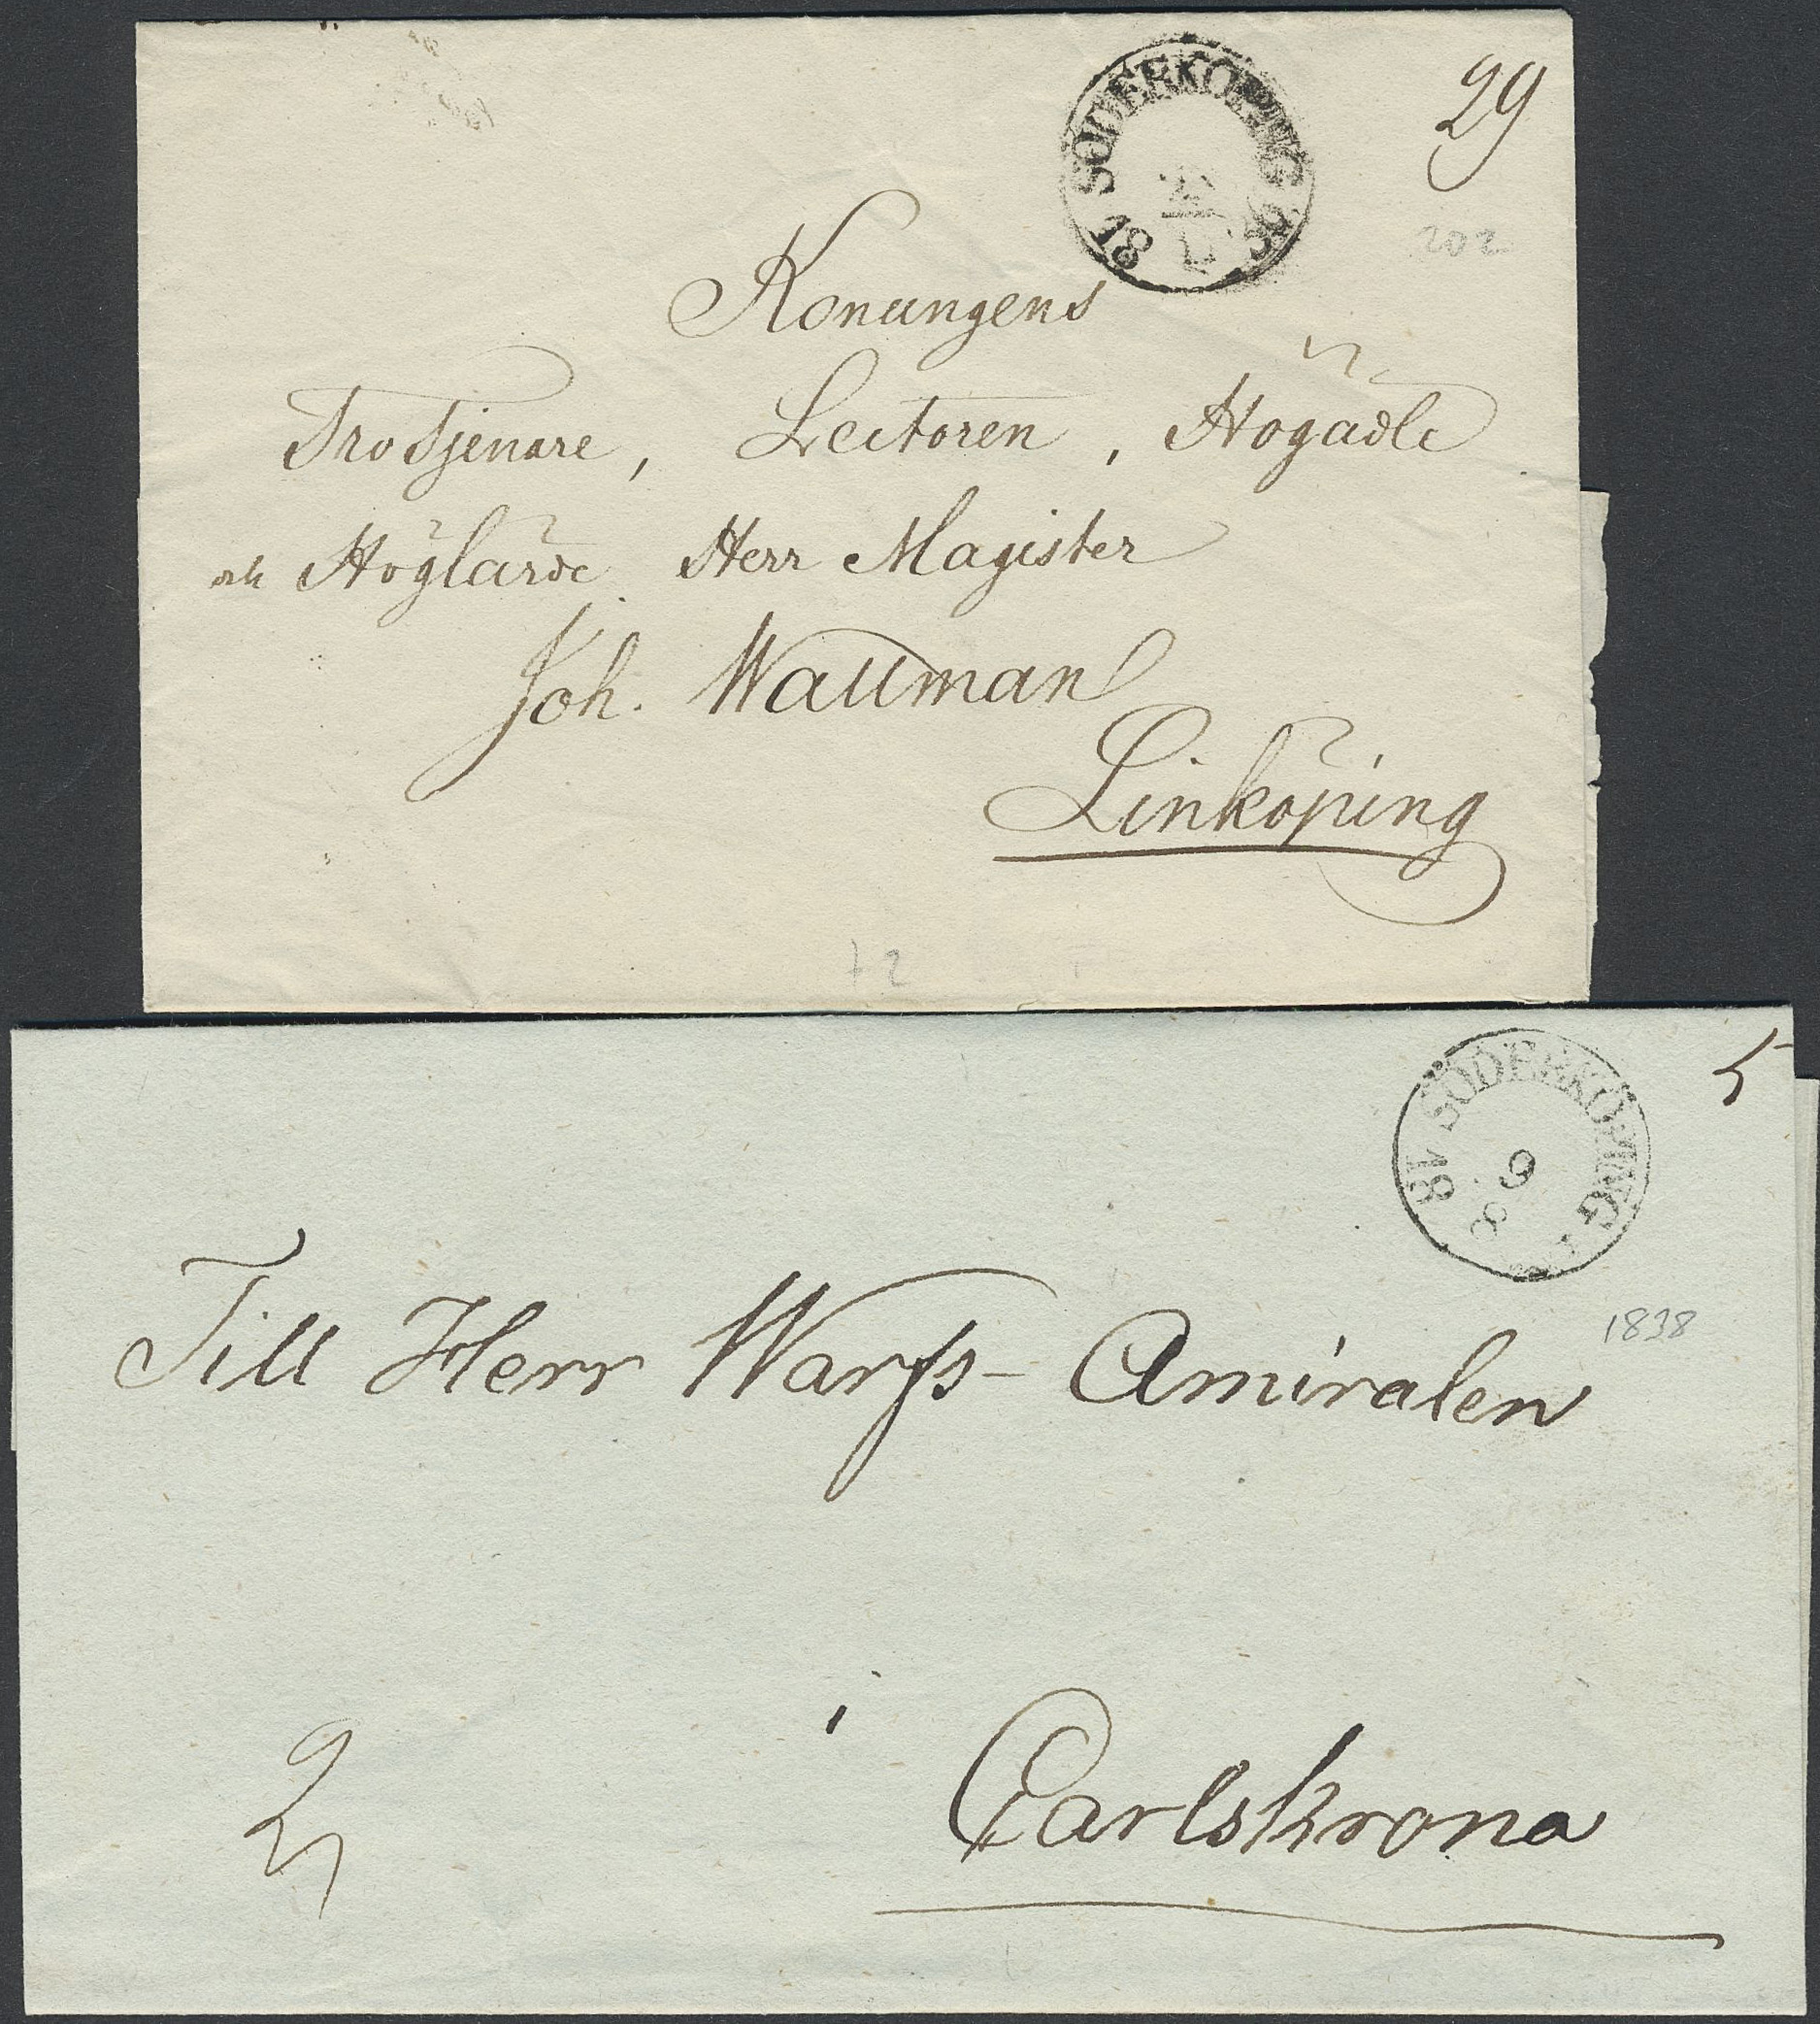 29
SÖDERKÖPING
18
202
Konungens
Trotjenare, Lectoren, Högädle
och Höglärde Herr Magister
Joh. Wallman
Linköping
72
SÖDERKÖPING
18
9
8
5
1838
Till Herr Warfs-Amiralen
i
Carlskrona
2